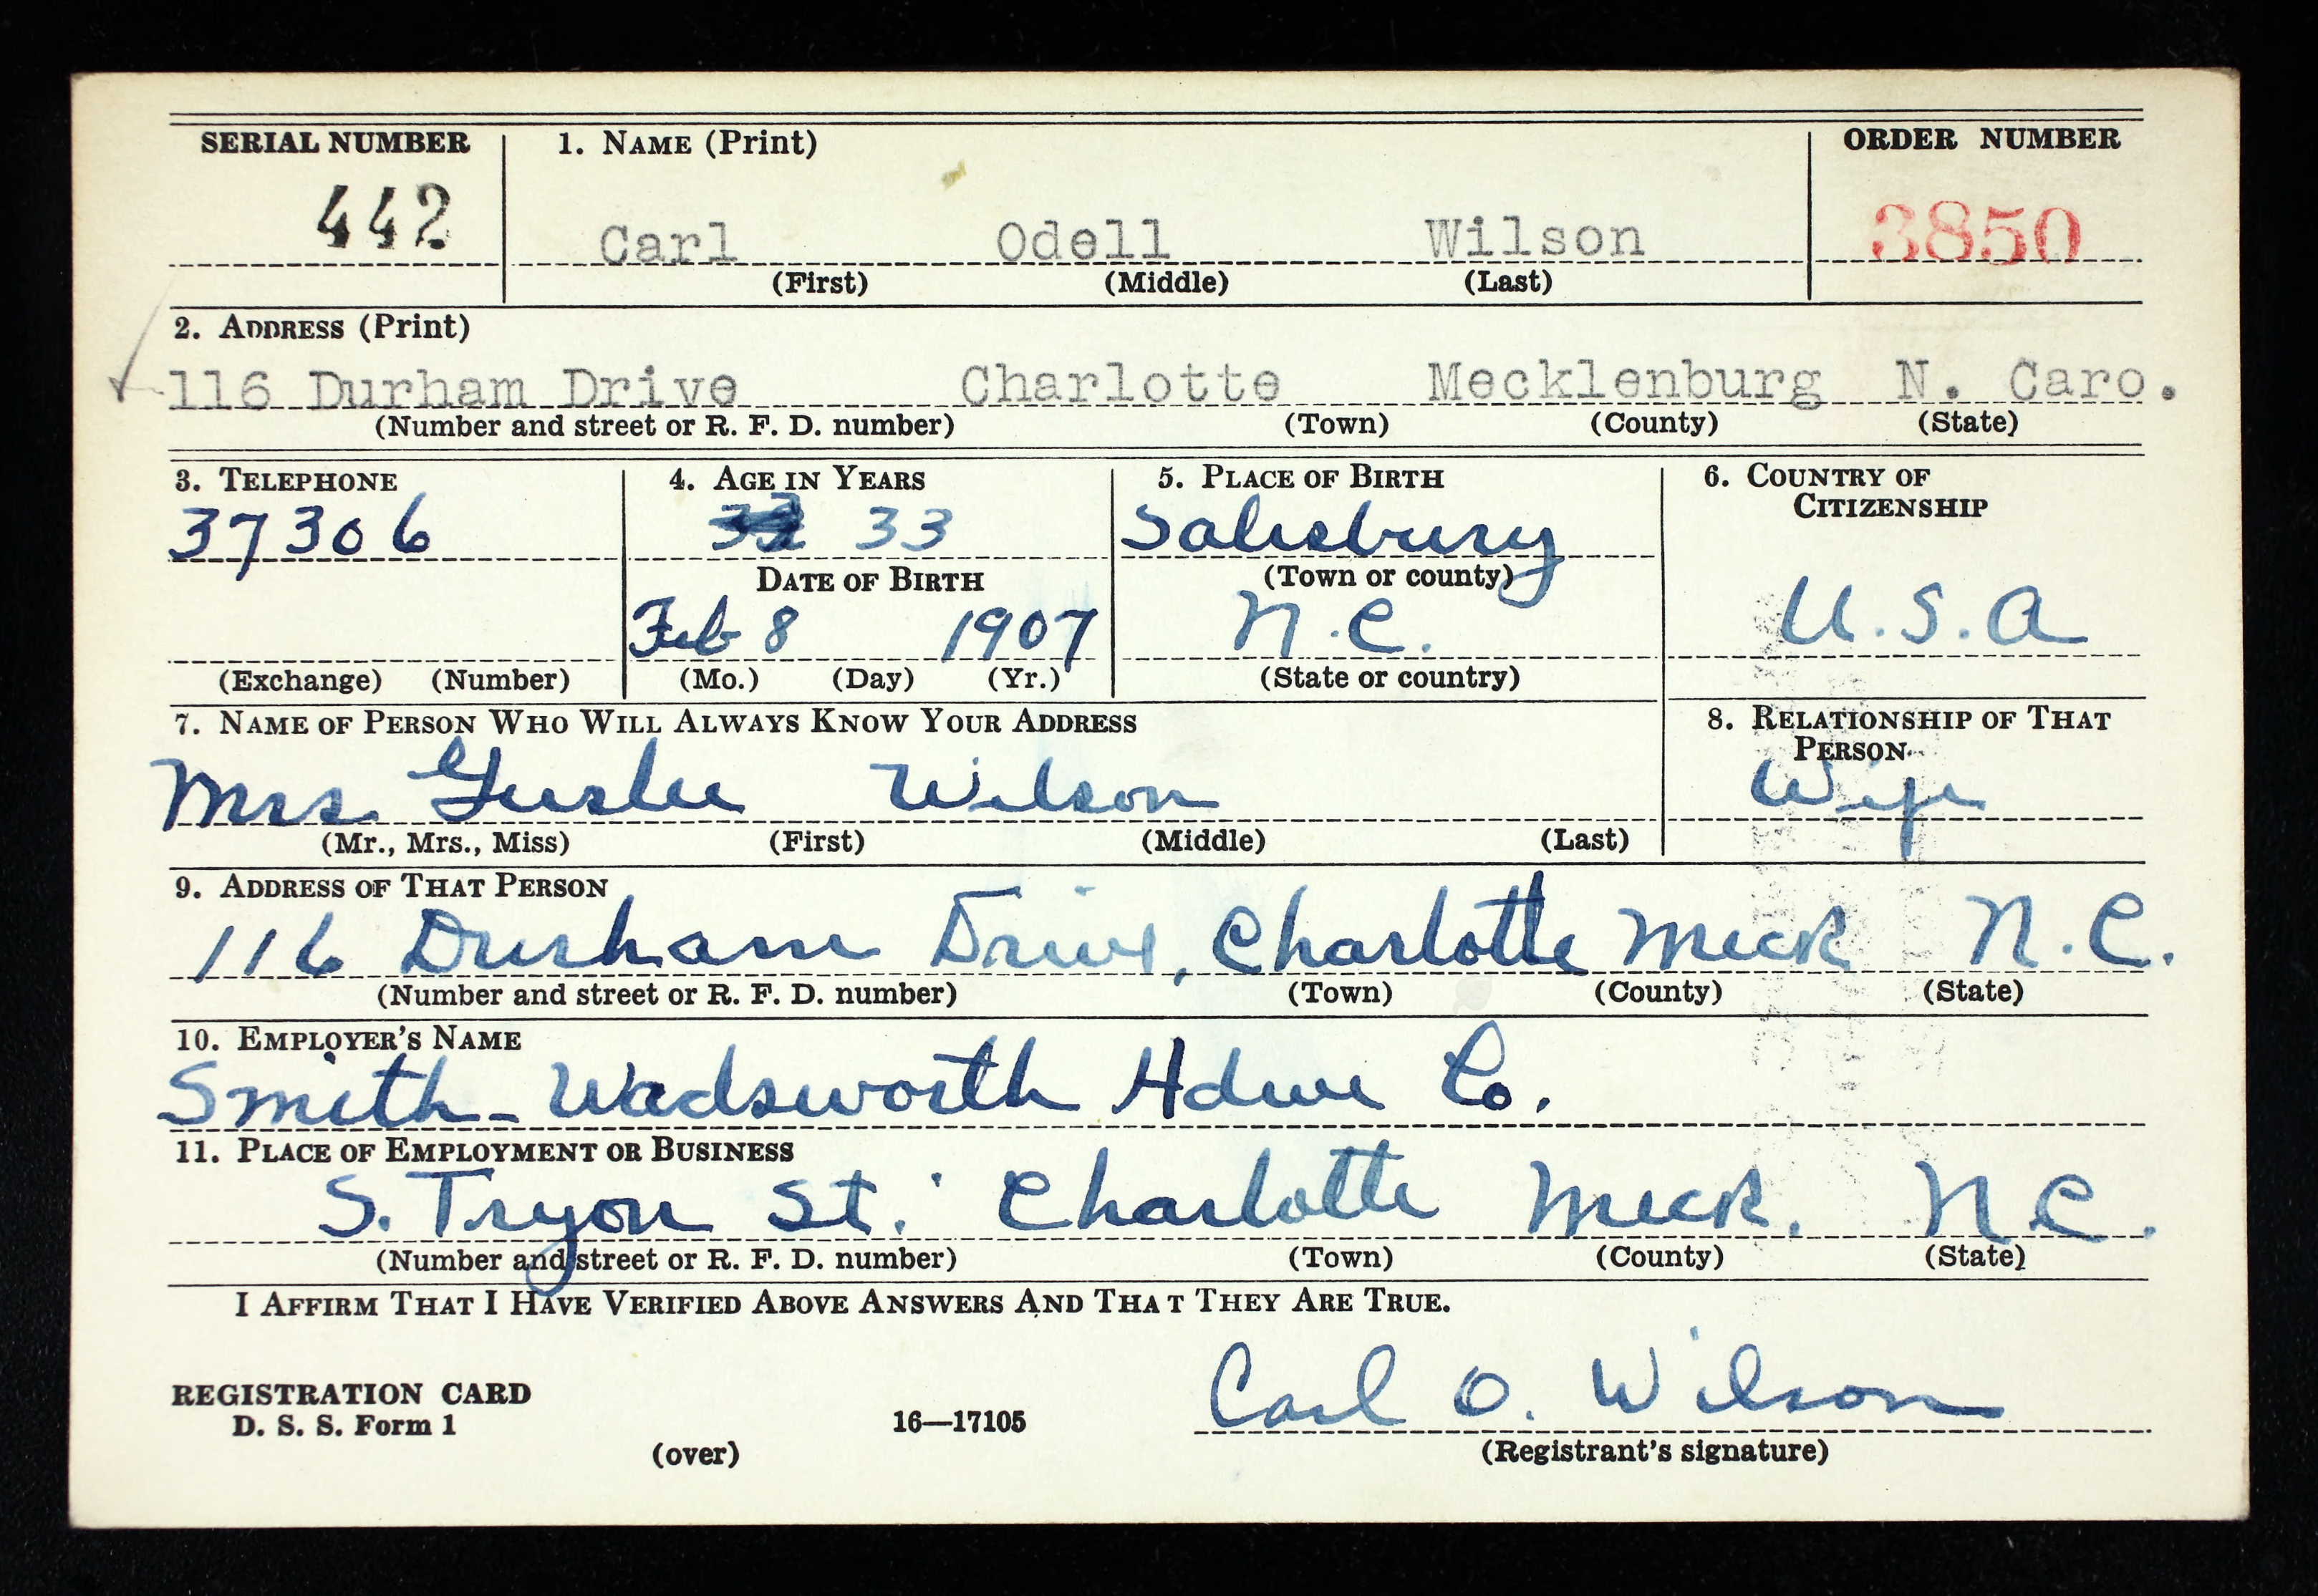 SERIAL NUMBER 1. NAME (Print) ORDER NUMBER
442 Carl Odell Wilson 3850
(First) (Middle) (Last)
2. ADDRESS (Print)
116 Durham Drive Charlotte Mecklenburg N. Caro.
(Number and street or R. F. D. number) (Town) (County) (State)
3. TELEPHONE 4. AGE IN YEARS 5. PLACE OF BIRTH 6. COUNTRY OF
CITIZENSHIP
37306 33 Salisbury
DATE OF BIRTH (Town or county)
Feb 8 1907 N.C. U.S.A
(Exchange) (Number) (Mo.) (Day) (Yr.) (State or country)
7. NAME OF PERSON WHO WILL ALWAYS KNOW YOUR ADDRESS 8. RELATIONSHIP OF THAT
PERSON
Mrs. Wilson Wife
(Mr., Mrs., Miss) (First) (Middle) (Last)
9. ADDRESS OF THAT PERSON
116 Durham Drive, Charlotte Meck N.C.
(Number and street or R. F. D. number) (Town) (County) (State)
10. EMPLOYER'S NAME
Smith-Wadsworth Hdwe Co.
11. PLACE OF EMPLOYMENT OR BUSINESS
S. Tryon St. Charlotte Meck. N.C.
(Number and street or R. F. D. number) (Town) (County) (State)
I AFFIRM THAT I HAVE VERIFIED ABOVE ANSWERS AND THAT THEY ARE TRUE.
Carl O. Wilson
REGISTRATION CARD
D. S. S. Form 1 16—17105
(over) (Registrant's signature)